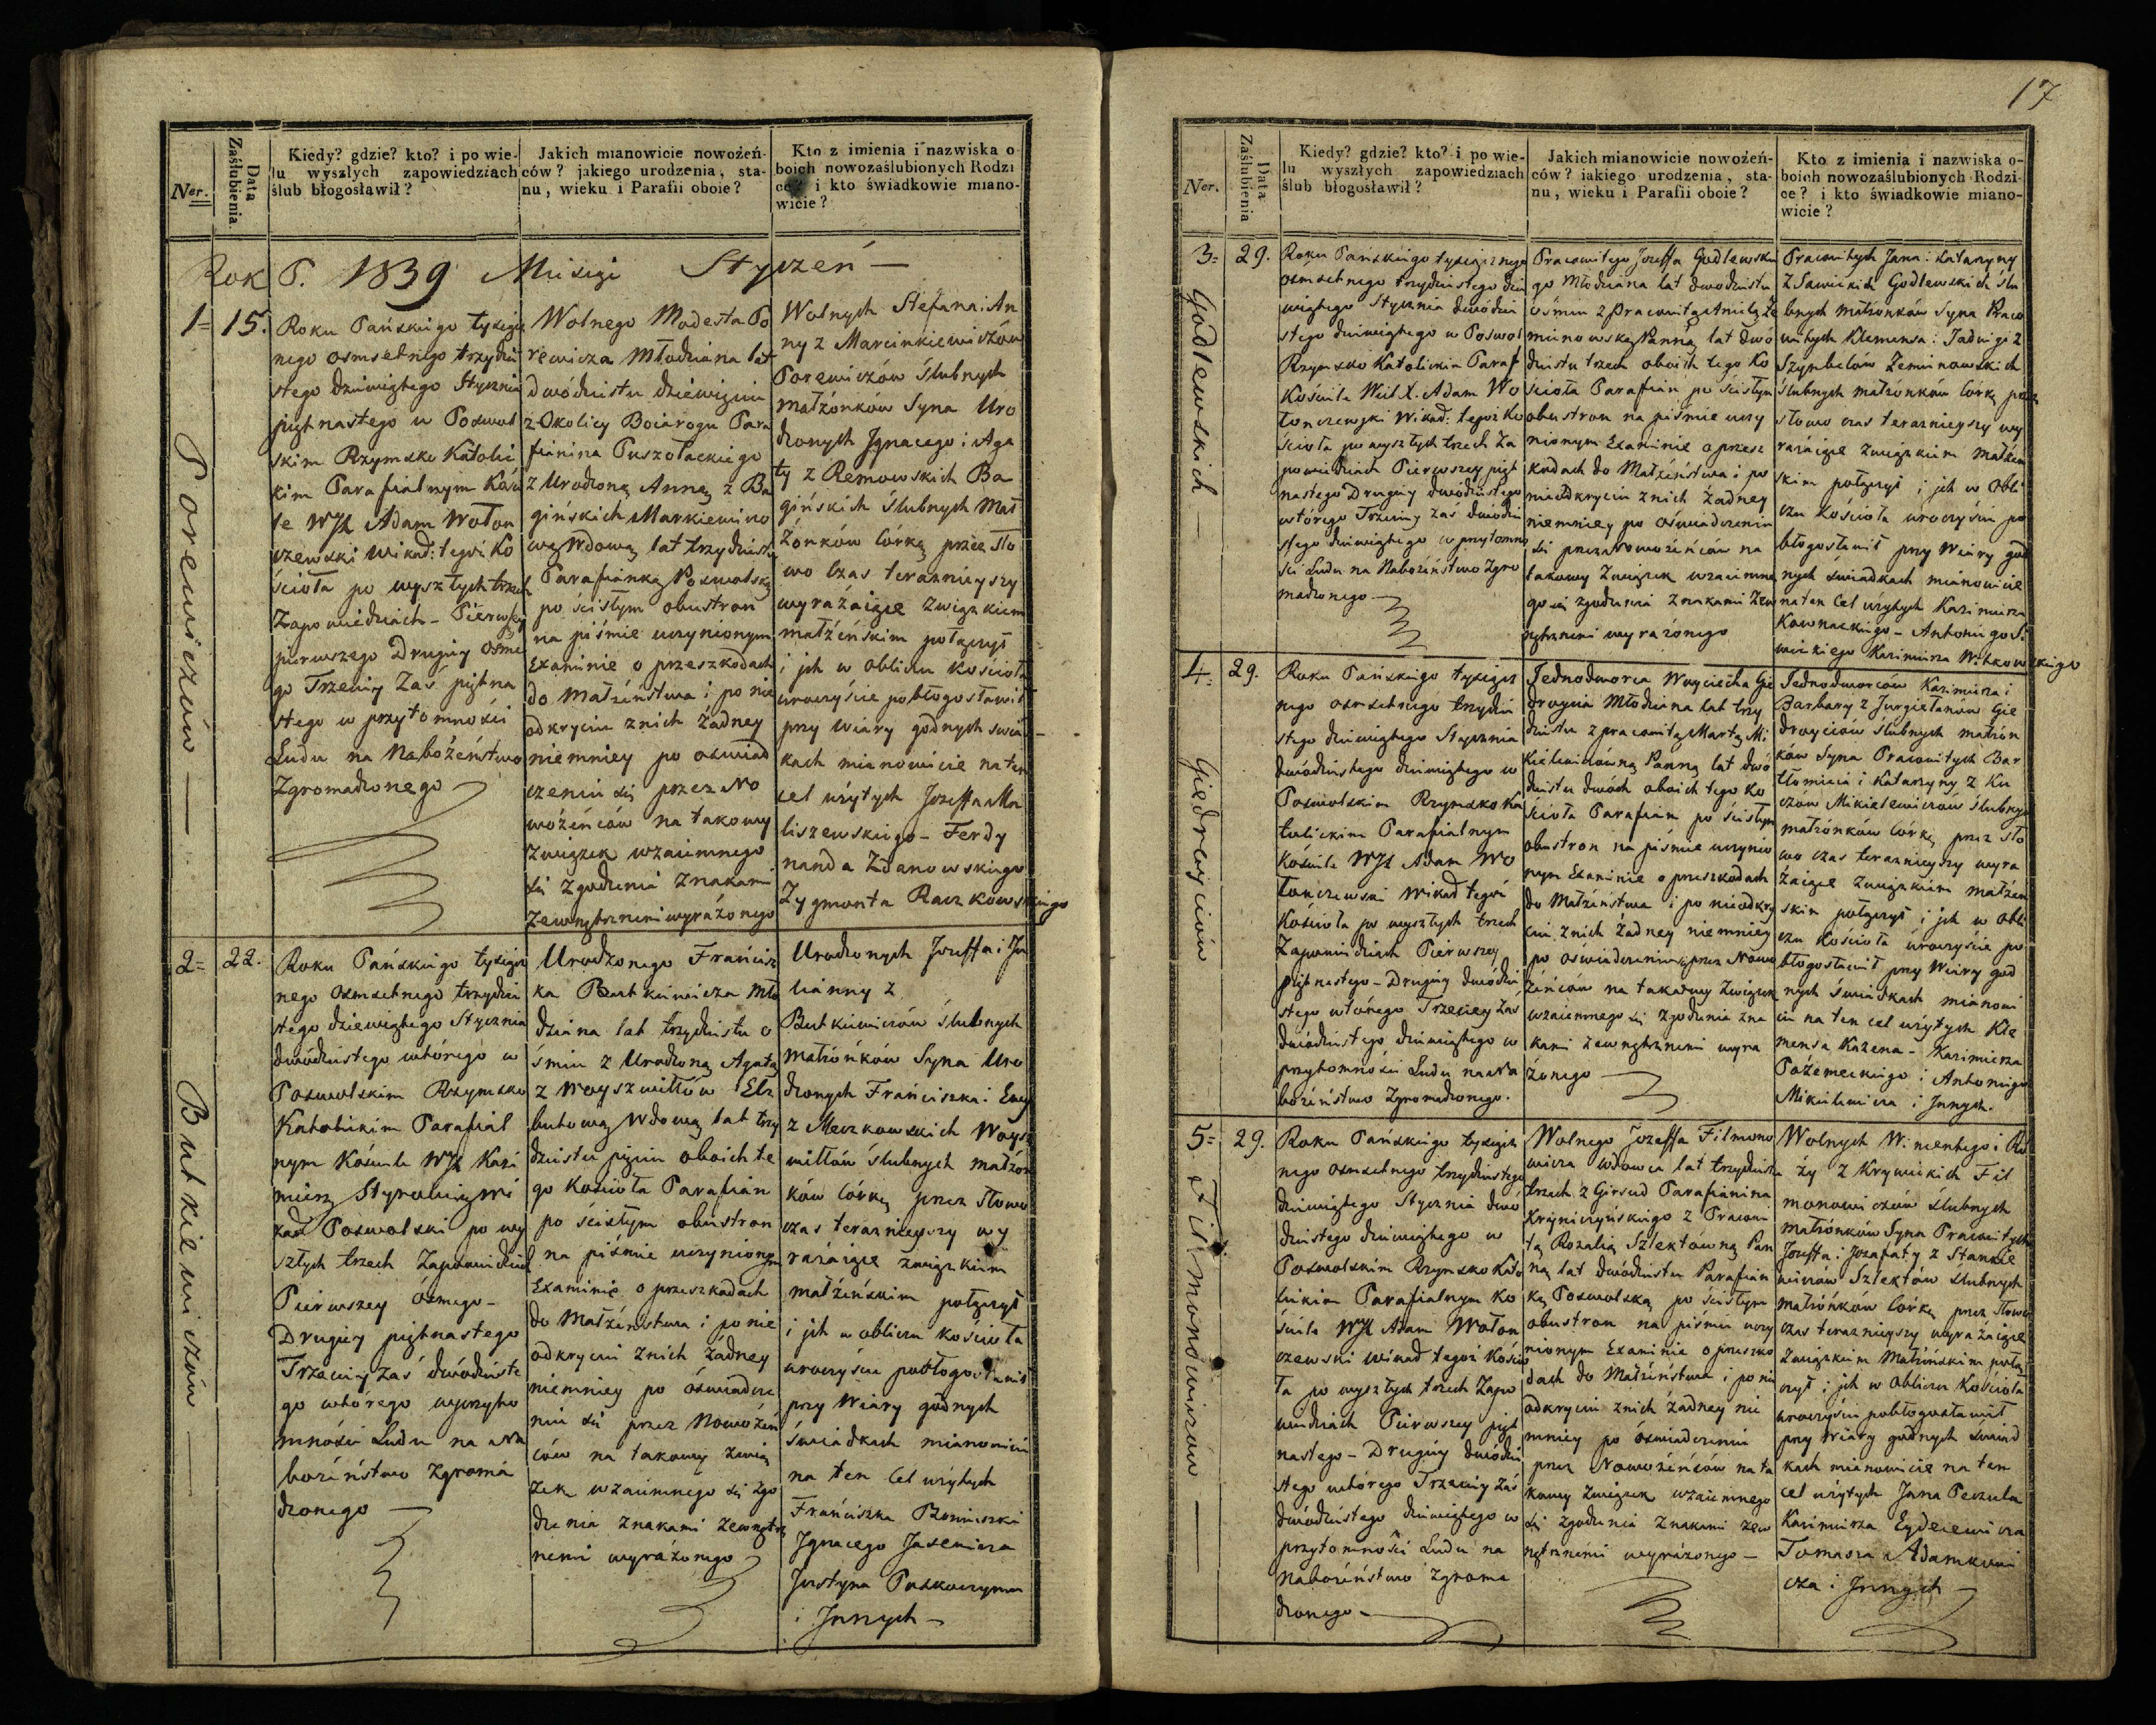 Ner.
Data Zaślubienia
Kiedy? gdzie? kto? i po wie-
lu wyszłych zapowiedziach
ślub błogosławił?
Jakich mianowicie nowożeń-
ców? jakiego urodzenia, sta-
nu, wieku i Parafii oboie?
Kto z imienia i nazwiska o
boich nowozaślubionych Rodzi
ce? i kto świadkowie miano-
wicie?
Rok P. 1839 Miesięi Styczeń —
1= 15.
Porewiczów —
Roku Pańskiego tysiącz
nego osmsetnego trzydzie
stego dziewiątego Stycznia
piętnastego w Poswol
skim Rzymsko Katolic
kim Parafialnym Kości
le WJX Adam Wołon
czewski Wikar: tegoż Ko
ścioła po wyszłych trzech
Zapowiedziach - Pierwszey
pierwszego Drugiey osme
go Trzeciey Zaś piętna
stego w przytomności
Ludu na Nabożeństwo
Zgromadzonego —
Wolnego Modesta Po
rewicza Młodziana lat
dwódziestu dziewięciu
z Okolicy Boiarogu Para
fianina Puszołackiego
z Urodzoną Anną z Ba
gińskich Markiewiczo
wą Wdową lat trzydziestu
Parafianką Poswolską
po ścisłym obustron
na piśmie uczynionym
Examinie o przeszkodach
do Małżeństwa i po nie
odkryciu znich żadney
niemniey po oswiad
czeniu się przez No
wożeńców na takowy
Związek wzaiemnego
się zgodzenia znakami
Zewnętrznemi wyrażonego
Wolnych Stefana i An
ny z Marcinkiewiczów
Porewiczów Ślubnych
małżonków Syna Uro
dzonych Jgnacego i Aga
ty z Remowskich Ba
gińskich Ślubnych Mał
żonków Córką przez Sło
wo Czas teraznieyszy
wyrażaiące Związkiem
małżeńskim połączył
i jch w obliczu Kościoła
uroczyście pobłogosławił
przy Wiary godnych świad-
kach mianowicie na ten
cel użytych Jozeffa Ma
liszewskiego - Ferdy
nanda Zdanowskiego
Zygmonta Raczkowskiego
2= 22.
Butkiewiczów —
Roku Pańskiego tysiącz
nego osmsetnego trzydzie
stego dziewiątego Stycznia
dwódziestego wtórego w
Poswolskim Rzymsko
Katolickim Parafial
nym Kościele WJX Kazi
mierz Wi
kary Poswolski po wy
szłych trzech Zapowiedziach
Pierwszey ósmego -
Drugiey piętnastego
Trzeciey zaś dwódzieste
go wtórego w przyto
mności Ludu na Na
bożeństwo Zgroma
dzonego —
Urodzonego Francisz
ka Butkiewicza Mło
dziana lat trzydziestu o
śmiu z Urodzoną Agatą
z Woyszwiłłów Elz
butową Wdową lat trzy
dziestu pięciu oboich te
go Kościoła Parafian
po ścisłym obustron
na piśmie uczynionym
Examinie o przeszkodach
do Małżeństwa i po nie
odkryciu znich żadney
niemniey po óświadcze
niu się przez Nowożeń
ców na takowy zwią
zek wzaiemnego się zgo
dzenia znakami zewnętrz
nemi wyrażonego
Urodzonych Jozeffa i Ju
lianny z
Butkiewiczów Ślubnych
Małżonków Syna Uro
dzonych Franciszka i Ewy
z Meczkowskich Woysz
wiłłów Ślubnych małżon
ków Córką przez Słowo
czas teraznieyszy wy
rażaiące związkiem
małżeńskim połączył
i jch w obliczu kościoła
uroczyście pobłogosławił
przy Wiary godnych
świadkach mianowicie
na ten Cel użytych
Franciszka
Jgnacego Jasewicza
Justyna
i Jnnych —
17
Ner.
Data Zaślubienia
Kiedy? gdzie? kto? i po wie-
lu wyszłych zapowiedziach
ślub błogosławił?
Jakich mianowicie nowożeń-
ców? iakiego urodzenia, sta-
nu, wieku i Parafii oboie?
Kto z imienia i nazwiska o-
boich nowozaślubionych Rodzi-
ce? i kto świadkowie miano-
wicie?
3= 29.
Godlewskich —
Roku Pańskiego tysiącznego
osmsetnego trzydziestego dzie
wiątego Stycznia dwódzie
stego dziewiątego w Poswol
Rzymsko Katolickim Paraf
Kościele WJX. Adam Wo
łonczewski Wikar: tegoż Ko
ścioła po wyszłych trzech Za
powiedziach Pierwszey pięt
nastego Drugiey dwódziestego
wtórego Trzeciey zaś dwódzie
stego dziewiątego w przytomno
ści Ludu na Nabożeństwo Zgro
madzonego —
Pracowitego Jozeffa Godlewskie
go Młodziana lat dwódziestu
ośmiu z Pracowitą Anielą Ze
munowską Panną lat dwó
dziestu trzech oboich tego Ko
ścioła Parafian po ścisłym
obustron na piśmie uczy
nionym Examinie o przesz
kodach do Małżeństwa i po
nieodkryciu znich żadney
niemniey po oświadczeniu
się przez Nowożeńców na
takowy Związek wzaiemne
go się zgodzenia znakami Zew
nętrznemi wyrażonego
Pracowitych Jana i Katarzyny
z Sawickich Godlewskich Ślu
bnych małżonków Syna Praco
witych Klemensa i Jadwigi z
Szymbelów Zemunowskich
Ślubnych małżonków Córką przez
słowo czas teraznieyszy wy
rażaiące związkiem małżeń
skim połączył i jch w Obli
czu Kościoła uroczyście po
błogosławił przy Wiary god
nych świadkach mianowicie
na ten Cel użytych Kazimierza
Kownackiego - Antoniego Sa
wickiego Kazimierza Witkowskiego
4= 29.
Giedroyciów
Roku Pańskiego tysiącz
nego osmsetnego trzydzie
stego dziewiątego Stycznia
dwódziestego dziewiątego w
Poswolskim Rzymsko Ka
tolickim Parafialnym
Kościele WJX Adam Wo
łonczewski Wikar tegoż
Kościoła po wyszłych trzech
Zapowiedziach Pierwszey
piętnastego - Drugiey dwódzie
stego wtórego Trzeciey zaś
dwódziestego dziewiątego w
przytomności Ludu na Na
bożeństwo Zgromadzonego.
Jednodworca Woyciecha Gie
droycia Młodziana lat trzy
dziestu z pracowitą Martą Mi
kielewiczówną Panną lat dwó
dziestu dwóch oboich tego Ko
ścioła Parafian po ścisłym
obustron na piśmie uczynio
nym Examinie o przeszkodach
do Małżeństwa i po nieodkry
ciu znich żadney niemniey
po oświadczeniu się przez Nowo
żeńców na takowy Związek
wzaiemnego się zgodzenia zna
kami zewnętrznemi wyra
żonego —
Jednodworców Kazimierza i
Barbary z Jurgielanów Gie
droyciów Ślubnych małżon
ków Syna Pracowitych Bar
tłomieia i Katarzyny z Ku
czow Mikielewiczów Ślubnych
małżonków Córką przez sło
wo czas teraznieyszy wyra
żaiące Związkiem małżeń
skim połączył i jch w obli
czu Kościoła uroczyście po
błogosławił przy Wiary god
nych świadkach mianowi
cie na ten cel użytych Kle
mensa Kazena - Kazimierza
Pożemeckiego i Antoniego
Mikulewicza i Jnnych.
5= 29.
Filmonowiczów —
Roku Pańskiego tysiącz
nego osmsetnego trzydziestego
dziewiątego Stycznia dwó
dziestego dziewiątego w
Poswolskim Rzymsko Kato
lickim Parafialnym Ko
ściele WJX Adam Wołon
czewski Wikar tegoż Kościo
ła po wyszłych trzech Zapo
wiedziach Pierwszey pięt
nastego - Drugiey dwódzie
stego wtórego Trzeciey zaś
dwódziestego dziewiątego w
przytomności Ludu na
Nabożeństwo zgroma
dzonego —
Wolnego Jozeffa Filmono
wicza Wdowca lat trzydziestu
trzech z Girsud Parafianina
Kryniczyńskiego z Pracowi
tą Rozalią Szlektówną Pan
ną lat dwódziestu Parafian
ką Poswolską po ścisłym
obustron na piśmie uczy
nionym Examinie o przeszko
dach do Małżeństwa i po nie
odkryciu znich żadney nie
mniey po óświadczeniu
przez Nowożeńców na ta
kowy Związek wzaiemnego
się zgodzenia znakami zew
nętrznemi wyrażonego —
Wolnych Wincentego i Ró
ży z Krywickich Fil
monowiczów Ślubnych
Małżonków Syna Pracowitych
Jozeffa i Jozafaty z Stankie
wiczów Szlektów Ślubnych
małżonków Córką przez Słowo
czas teraznieyszy wyrażaiące
Związkiem Małżeńskim połą
czył i jch w Obliczu Kościoła
uroczyście pobłogosławił
przy Wiary godnych świad
kach mianowicie na ten
cel użytych Jana Peczula
Kazimierza Eydziewicza
Tomasza Adamkowi
cza i Jnnych —